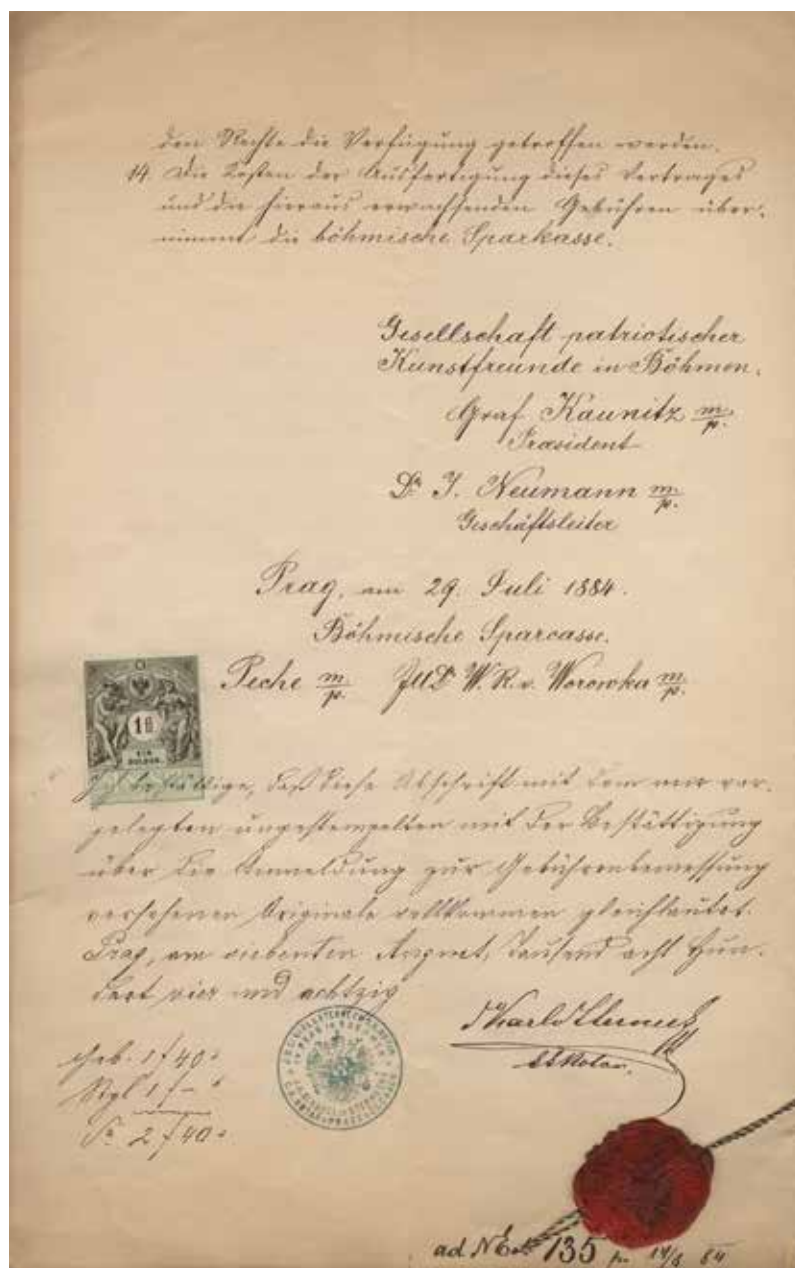 den Rechte die Verfügung getroffen werden.
14 Die Kosten der Ausfertigung dieses Vertrages
und die hieraus erwachsenden Gebühren über-
nimmt die böhmische Sparkasse.
Gesellschaft patriotischer
Kunstfreunde in Böhmen.
Graf Kaunitz m/p.
Praesident
Dr. J. Neumann m/p.
Geschäftsleiter
Prag, am 29. Juli 1884.
Böhmische Sparcasse.
Peche m/p. JUDr W. R. v. Worowka m/p.
1 fl
EIN
GULDEN
Ich bestättige, daß diese Abschrift mit dem mir vor-
gelegten ungestempelten mit der Bestättigung
über die Anmeldung zur Gebührenbemessung
versehenen Originale vollkommen gleichlautet.
Prag, am siebenten August, Tausend acht Hun-
dert vier und achtzig
Geb. 1 f 40
Stpl 1 f –
Sa 2 f 40
kk Notar.
ad NE 135 p. 14/8 84